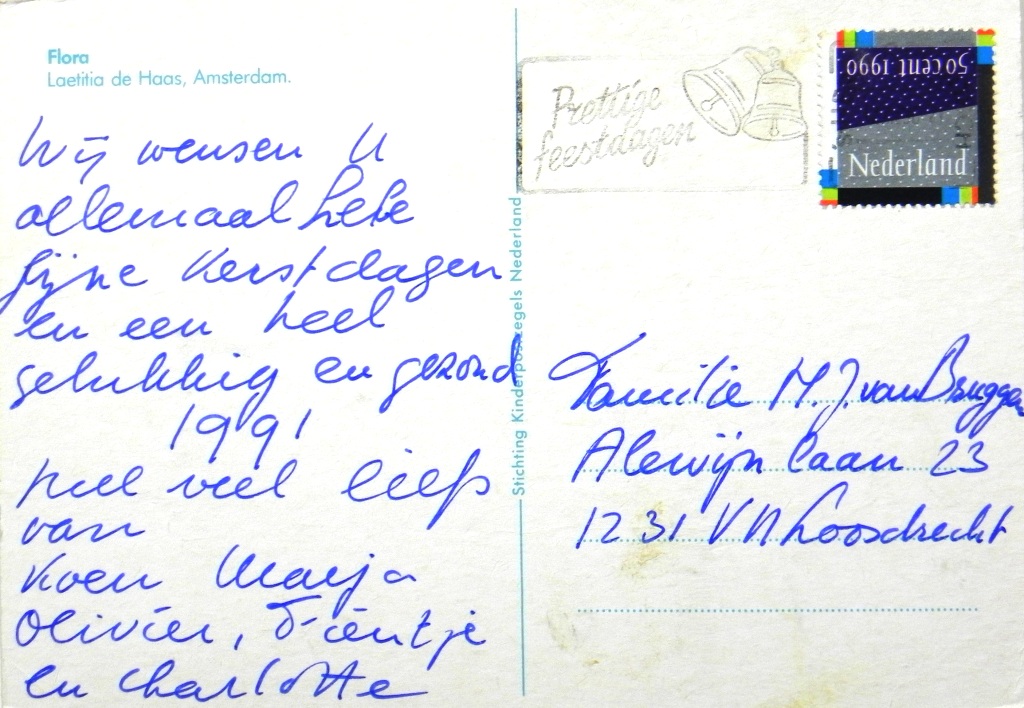 Flora
Laetitia de Haas, Amsterdam.
Wij wensen U
allemaal hele
fijne Kerstdagen
en een heel
gelukkig en gezond
1991
heel veel liefs
van
Koen Marja
Olivier, Fientje
en Charlotte
Stichting Kinderpostzegels Nederland
Prettige
feestdagen
50 cent 1990
Nederland
Familie M. J. van Bruggen
Alewijn laan 23
1231 VN Loosdrecht